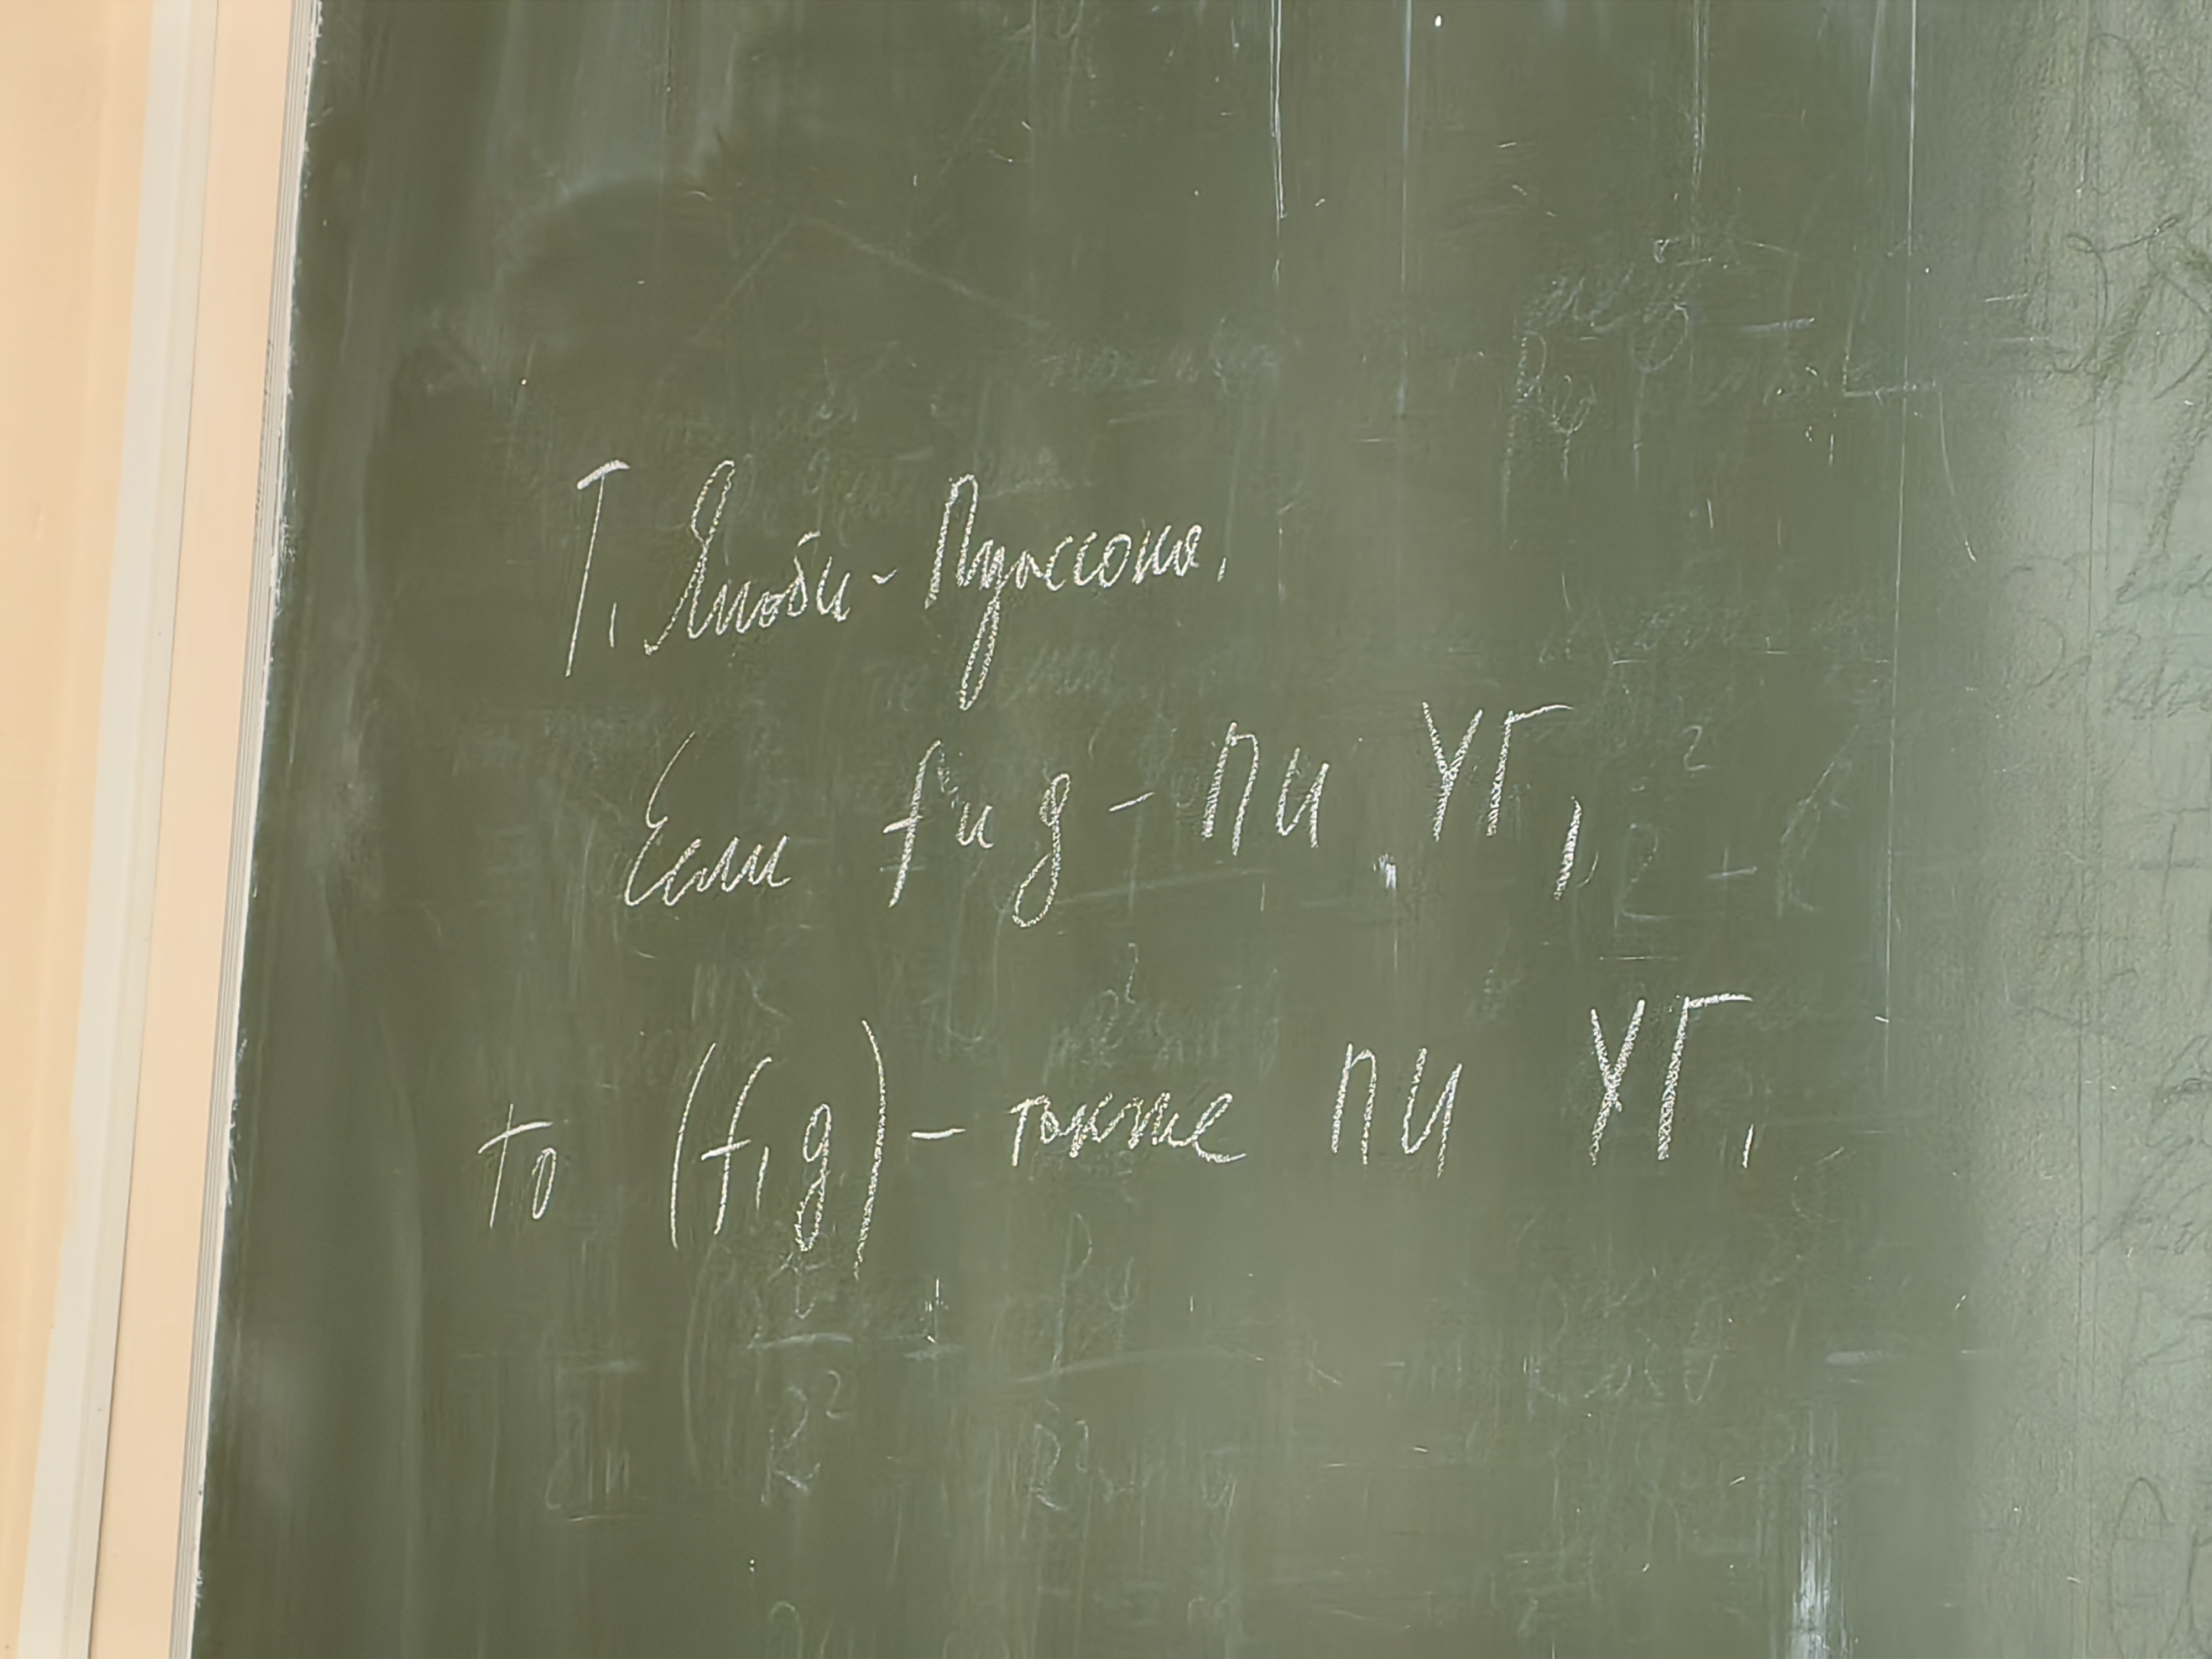 Т. Якоби - Пуассона.
Если f и g - ПИ УГ,
то (f, g) - также ПИ УГ.